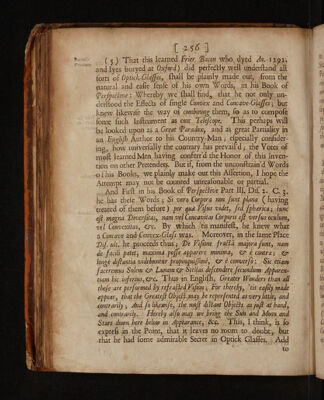 [ 256 ]
(5) That this learned Frier Bacon who dyed An. 1292.
and lyes buryed at Oxford) did perfectly well understand all
sorts of Optick-Glasses, shall be plainly made out, from the
natural and easie sense of his own Words, in his Book of
Perspective; Whereby we shall find, that he not only un-
derstood the Effects of single Convex and Concave-Glasses; but
knew likewise the way of combining them, so as to compose
some such Instrument as our Telescope. This perhaps will
be looked upon as a Great Paradox, and as great Partiality in
an English Author to his Country-Man; especially consider-
ing, how universally the contrary has prevail'd, the Votes of
most learned Men having conferr'd the Honor of this inven-
tion on other Pretenders. But if, from the unconstrain'd Words
of his Books, we plainly make out this Assertion, I hope the
Attempt may not be counted unreasonable or partial.
And First in his Book of Perspective Part III. Dis. 2. C. 3.
he has these Words; Si vero Corpora non sunt plana (having
treated of them before) per quæ Visus videt, sed sphærica; tunc
est magna Diversitas, nam vel Concavitas Corporis est versus oculum,
vel Convexitas, &c. By which 'tis manifest, he knew what
a Concave and Convex-Glass was. Moreover, in the same Place
Dis. ult. he proceeds thus; De Visione fractâ majora sunt, nam
de facili patet, maxima posse apparere minima, & è contra: &
longè distantia videbuntur propinquissimè, & è converso: Sic etiam
faceremus Solem & Lunam & Stellas descendere secundum Apparen-
tiam hic inferius, &c. Thus in English, Greater Wonders than all
these are performed by refracted Vision; For thereby, 'tis easily made
appear, that the Greatest Objects may be represented as very little, and
contrarily; And so likewise, the most distant Objects as just at hand,
and contrarily. Hereby also may we bring the Sun and Moon and
Stars down here below in Appearance, &c. This, I think, is so
express in the Point, that it leaves no room to doubt, but
that he had some admirable Secret in Optick Glasses. Add
to